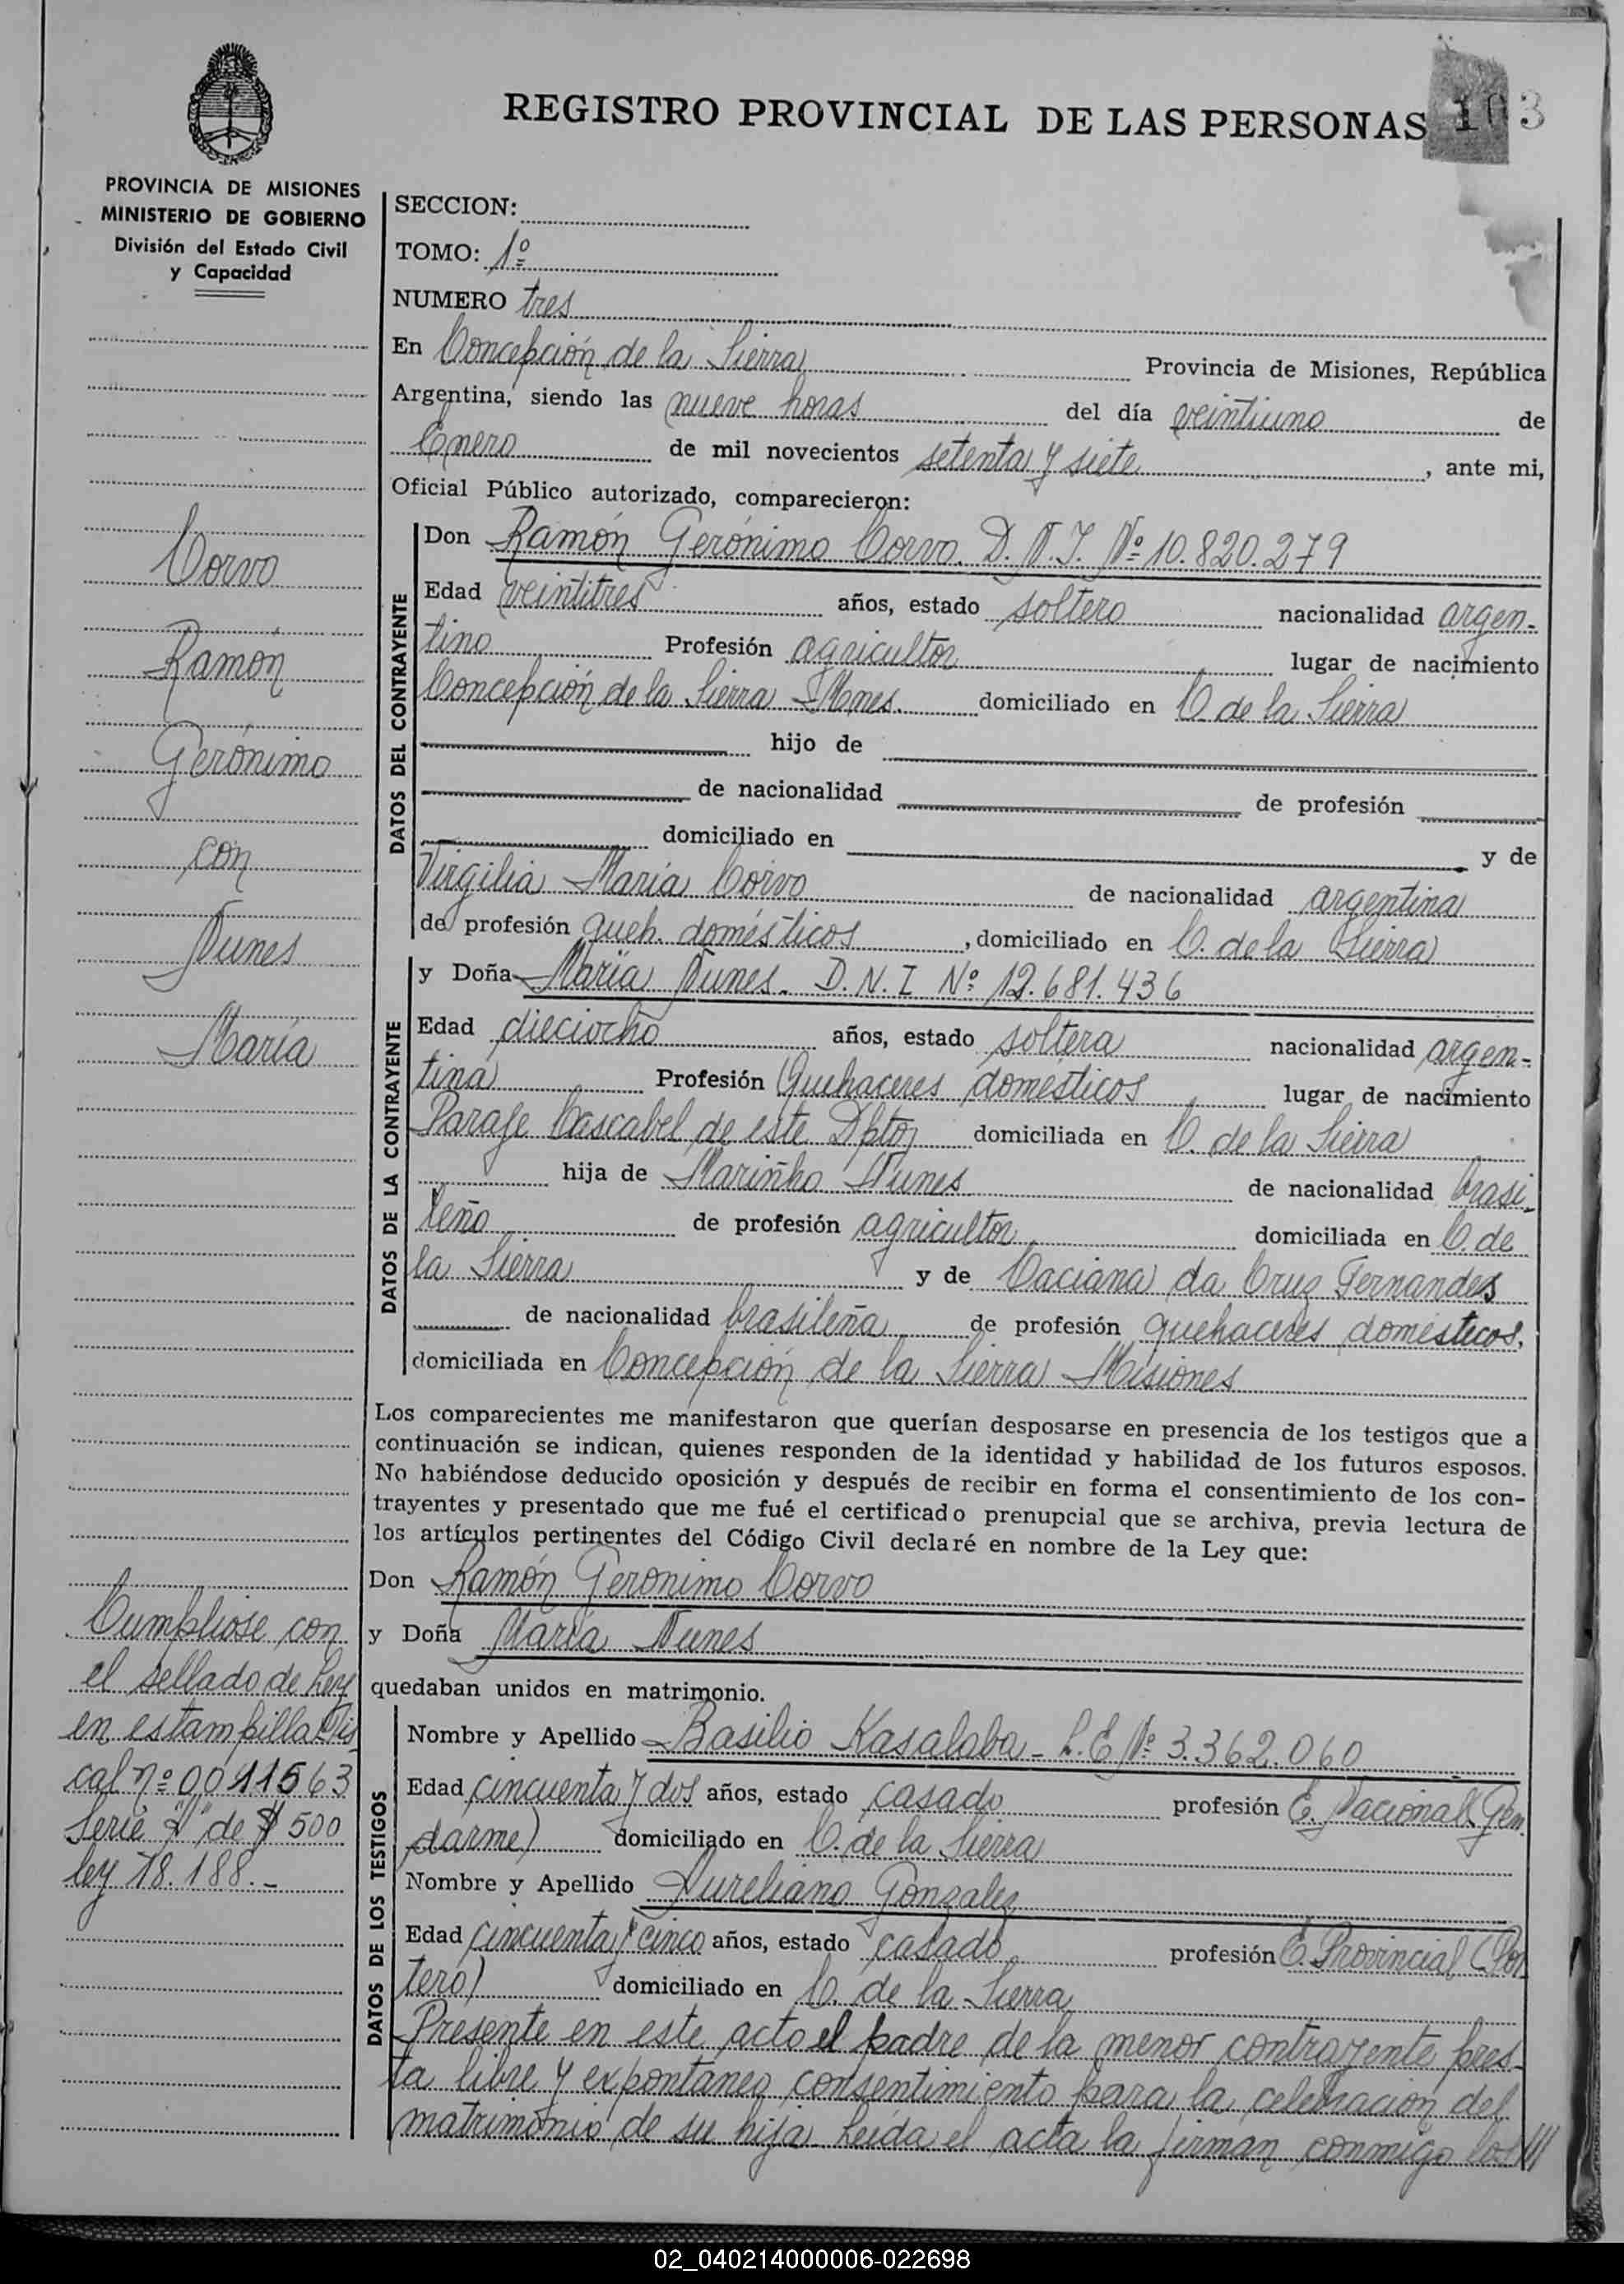 REGISTRO PROVINCIAL DE LAS PERSONAS 103
PROVINCIA DE MISIONES
MINISTERIO DE GOBIERNO
División del Estado Civil
y Capacidad
Corvo
Ramón
Gerónimo
con
Nunes
María
Cumpliose con
el sellado de Ley
en estampilla Fis
cal nº 0011563
Serie "A" de $ 500
ley 18.188.-
SECCION:
TOMO: 1º
NUMERO tres
En Concepción de la Sierra Provincia de Misiones, República
Argentina, siendo las nueve horas del día veintiuno de
Enero de mil novecientos setenta y siete, ante mi,
Oficial Público autorizado, comparecieron:
DATOS DEL CONTRAYENTE
Don Ramón Gerónimo Corvo. D.N.I. Nº 10.820.279
Edad veintitres años, estado soltero nacionalidad argen-
tino Profesión agricultor lugar de nacimiento
Concepción de la Sierra Mnes. domiciliado en C. de la Sierra
hijo de
de nacionalidad de profesión
domiciliado en y de
Virgilia María Corvo de nacionalidad argentina
de profesión queh. domésticos, domiciliado en C. de la Sierra
DATOS DE LA CONTRAYENTE
y Doña María Nunes. D.N.I Nº 12.681.436
Edad dieciocho años, estado soltera nacionalidad argen-
tina Profesión Quehaceres domésticos lugar de nacimiento
Paraje Cascabel de este Dpto, domiciliada en C. de la Sierra
hija de Marinho Nunes de nacionalidad brasi
leño de profesión agricultor domiciliada en C. de
la Sierra y de Caciana da Cruz Fernandes
de nacionalidad brasileña de profesión quehaceres domésticos,
domiciliada en Concepción de la Sierra Misiones
Los comparecientes me manifestaron que querían desposarse en presencia de los testigos que a
continuación se indican, quienes responden de la identidad y habilidad de los futuros esposos.
No habiéndose deducido oposición y después de recibir en forma el consentimiento de los con-
trayentes y presentado que me fué el certificado prenupcial que se archiva, previa lectura de
los artículos pertinentes del Código Civil declaré en nombre de la Ley que:
Don Ramón Geronimo Corvo
y Doña María Nunes
quedaban unidos en matrimonio.
DATOS DE LOS TESTIGOS
Nombre y Apellido Basilio Kasalaba - L.E Nº 3.362.060
Edad cincuenta y dos años, estado casado profesión E. Nacional Gen
darme) domiciliado en C. de la Sierra
Nombre y Apellido Aureliano Gonzalez
Edad cincuenta y cinco años, estado casado profesión E. Provincial (Por
tero) domiciliado en C. de la Sierra
Presente en este acto el padre de la menor contrayente pres-
ta libre y expontáneo consentimiento para la celebración del
matrimonio de su hija. Leída el acta la firman conmigo los///
02_040214000006-022698